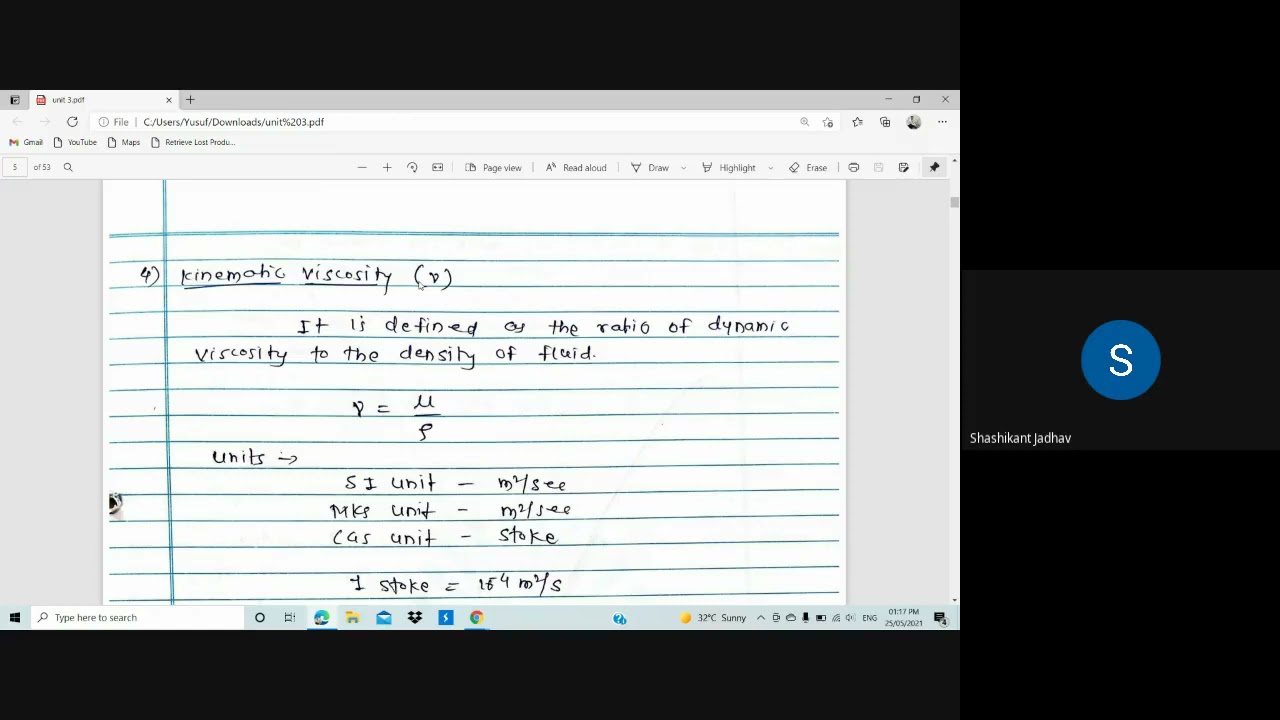 unit 3.pdf
File | C:/Users/Yusuf/Downloads/unit%203.pdf
Gmail YouTube Maps Retrieve Lost Produ...
5 of 53 Page view Read aloud Draw Highlight Erase
4) Kinematic viscosity (ν)
It is defined as the ratio of dynamic
viscosity to the density of fluid.
ν = μ
ρ
units →
SI unit - m²/sec
MKS unit - m²/sec
CGS unit - stoke
1 stoke = 10⁻⁴ m²/s
S
Shashikant Jadhav
Type here to search
32°C Sunny
ENG
01:17 PM
25/05/2021
4